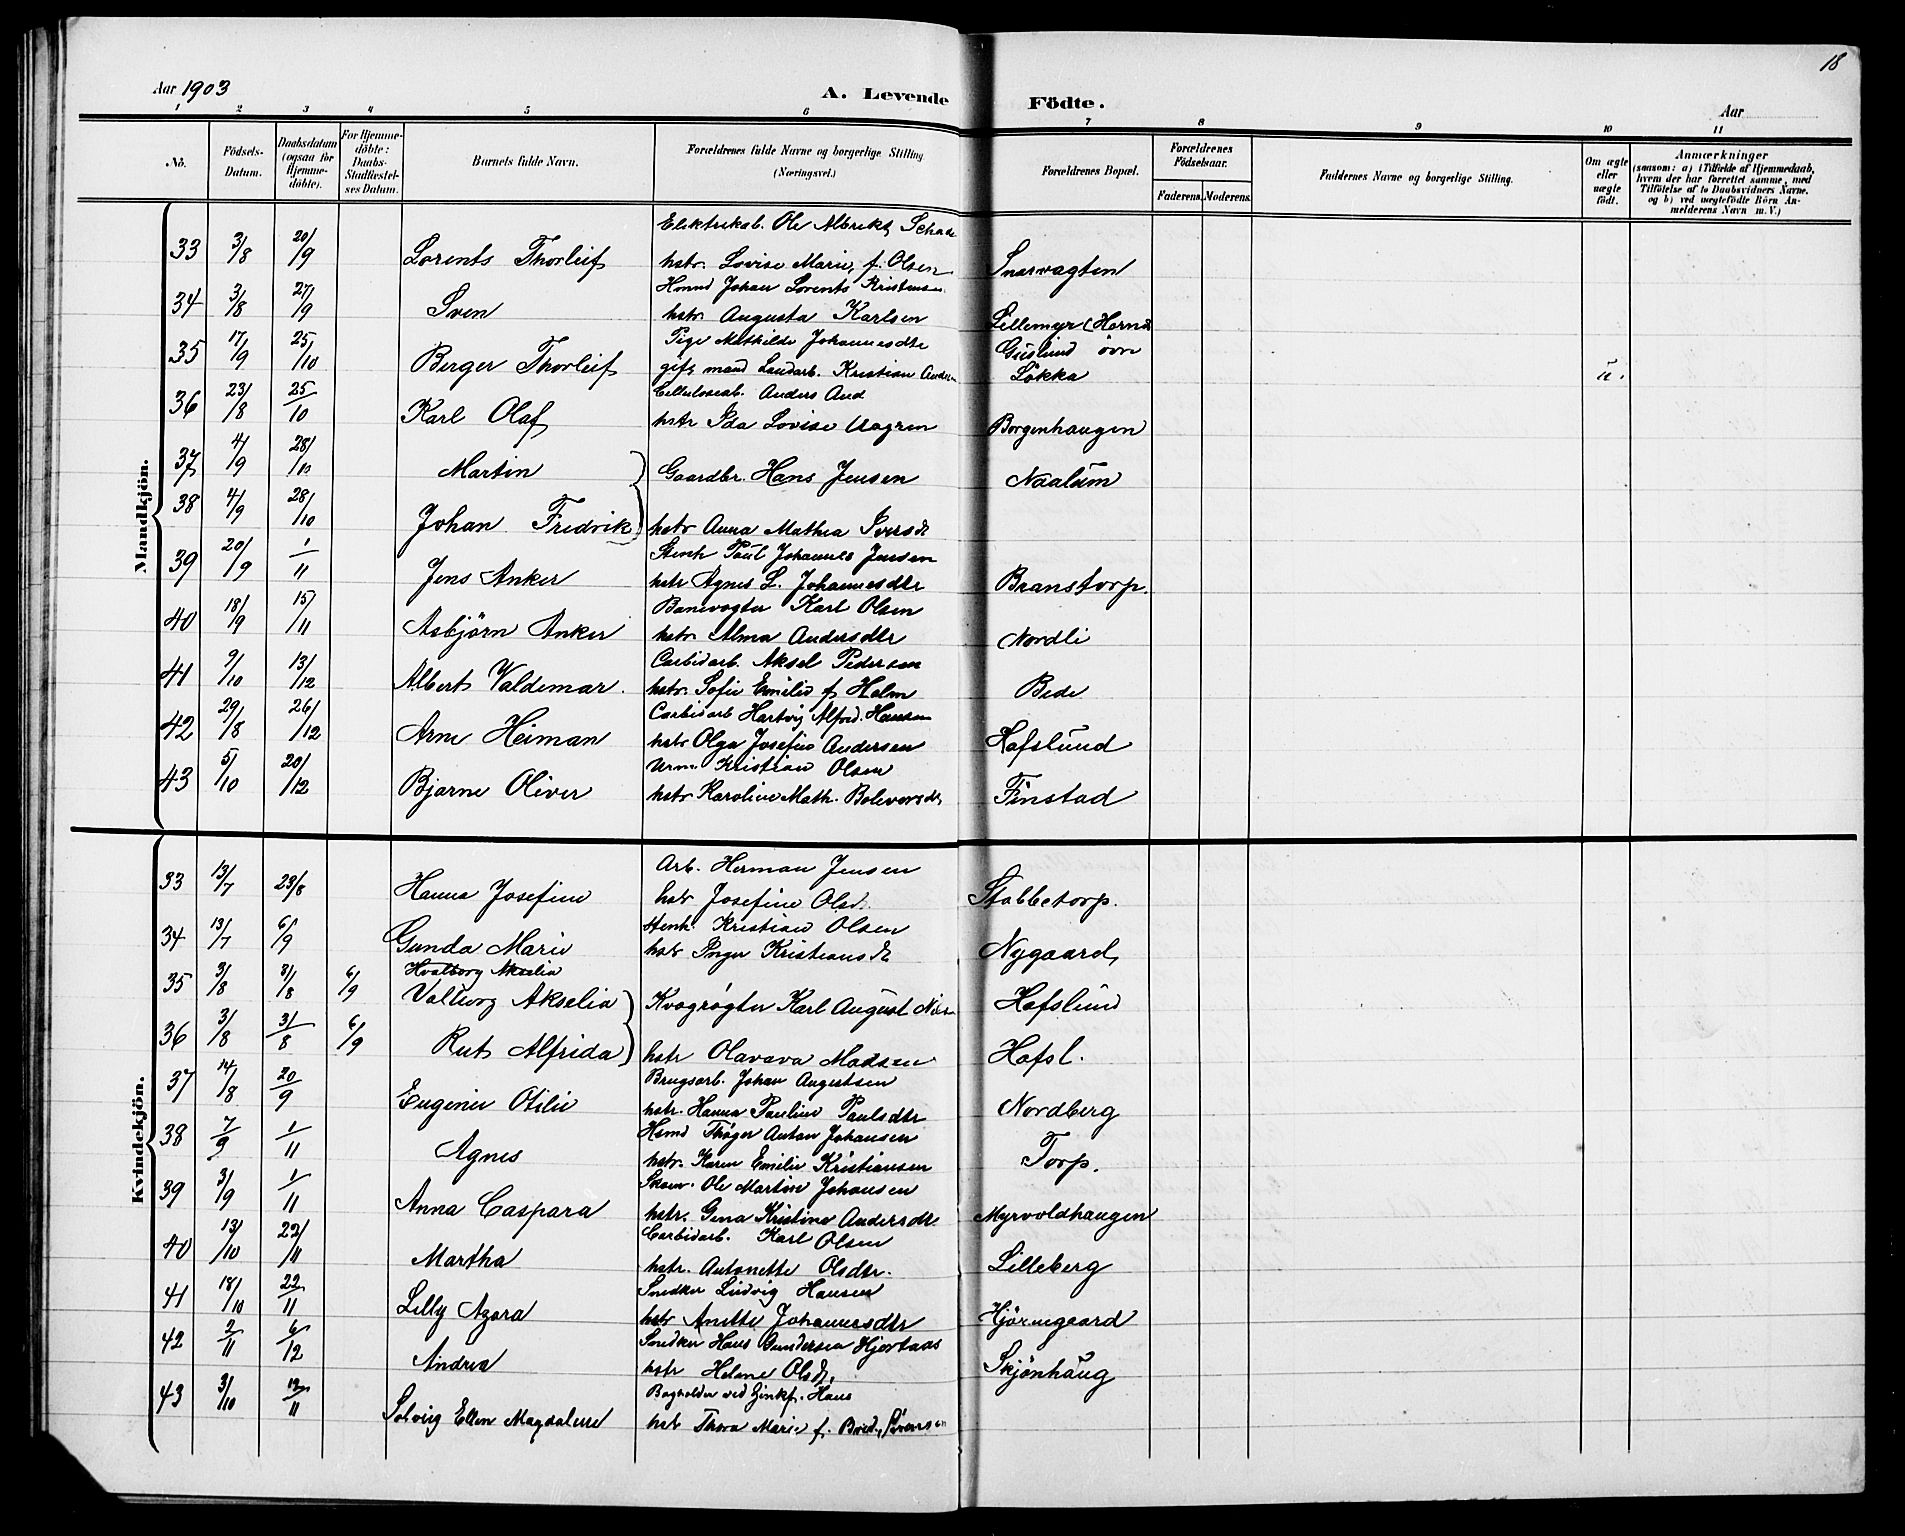 18
Aar 1903
A. Levende Födte.
Aar
1 2 3 4 5 6 7 8 9 10 11
No. Födsels-Datum. Daabsdatum (ogsaa for Hjemme-döbte). For Hjemme-döbte: Daabs-Stadfæstel-ses Datum. Barnets fulde Navn. Forældrenes fulde Navne og borgerlige Stilling (Næringsvei.) Forældrenes Bopæl. Forældrenes Födselsaar. Faderens. Moderens. Faddernes Navne og borgerlige Stilling. Om ægte eller uægte födt. Anmærkninger (saasom: a) i Tilfælde af Hjemmedaab, hvem der har forrettet samme, med Tilföielse af to Daabsvidners Navne, og b) ved uægtefödte Börn An-melderens Navn m. V.)
Mandkjön.
Elektrikab. Ole Albrikt Schade
33 3/8 20/9 Lorents Thorleif hstr. Lovise Marie, f. Olsen Snarvagten
Hmmd Johan Lorents Kristensen
34 3/8 27/9 Sven hstr Augusta Karlsen Lillemyr (Hornes
Pige Mathilde Johannesdtr Guslund övre
35 17/9 25/10 Berger Thorleif gift mand Landarb. Kristian Andersen Løkka u.
Celluloseab. Anders And
36 23/8 25/10 Karl Olaf hstr Ida Lovise Aagren Borgenhaugen
37 4/9 28/10 Martin Gaardbr. Hans Jensen Naalum
38 4/9 28/10 Johan Fredrik hstr Anna Mathea Iversdt
Stenh Paul Johannes Jensen
39 20/9 1/11 Jens Anker hstr Agnes L. Johannesdtr Branstorp.
Banevogter Karl Olsen
40 18/9 15/11 Asbjörn Anker hstr. Alma Andersdtr Nordli
Carbidarb. Aksel Pedersen
41 9/10 13/12 Albert Valdemar. hstr. Sofie Emilie f. Holm Bede
Carbidarb Hartvig Alfred. Hansen
42 29/8 26/12 Arne Heiman hstr Olga Josefine Andersen Hafslund
Urm. Kristian Olsen
43 5/10 20/12 Bjarne Oliver hstr Karoline Math. Boleversdt Finstad
Kvindekjön.
Arb. Herman Jensen
33 13/7 23/8 Hanna Josefine hstr Josefine Olsd. Stabbetorp.
Stenh. Kristian Olsen
34 13/7 6/9 Gunda Marie hstr Inger Kristiansdt Nygaard,
Hvalborg Akselia
35 3/8 8/8 6/9 Valborg Akselia Kvægrøgter Karl August Hafslund
36 3/8 31/8 6/9 Rut Alfrida hstr Olavava Madsen Hafsl.
Brugsarb. Johan Augustsen
37 14/8 20/9 Eugenie Otilie hstr. Hanna Pauline Paulsdtr Nordberg
Hsmd Thøger Anton Johansen
38 7/9 1/11 Agnes hstr. Karen Emilie Kristiansen Torp.
Skom. Ole Martin Johansen
39 3/9 1/11 Anna Caspara hstr. Gina Kristine Andersdtr Myrvoldhaugen
Carbidarb. Karl Olsen
40 13/10 22/11 Martha hstr. Antonette Olsdtr. Lilleberg
Snedker Ludvig Hansen
41 18/10 22/11 Lilly Agora hstr Anette Johannesdtr Hjörnegaard
Snedker Hans Gundersen Hjortaas
42 2/11 6/12 Andrea hstr Helene Olsdt, Skjönhaug
Bogholder ved Zinkf. Hans
43 3/10 /11 Solveig Ellen Magdalene hstr Thora Marie f. Iversen